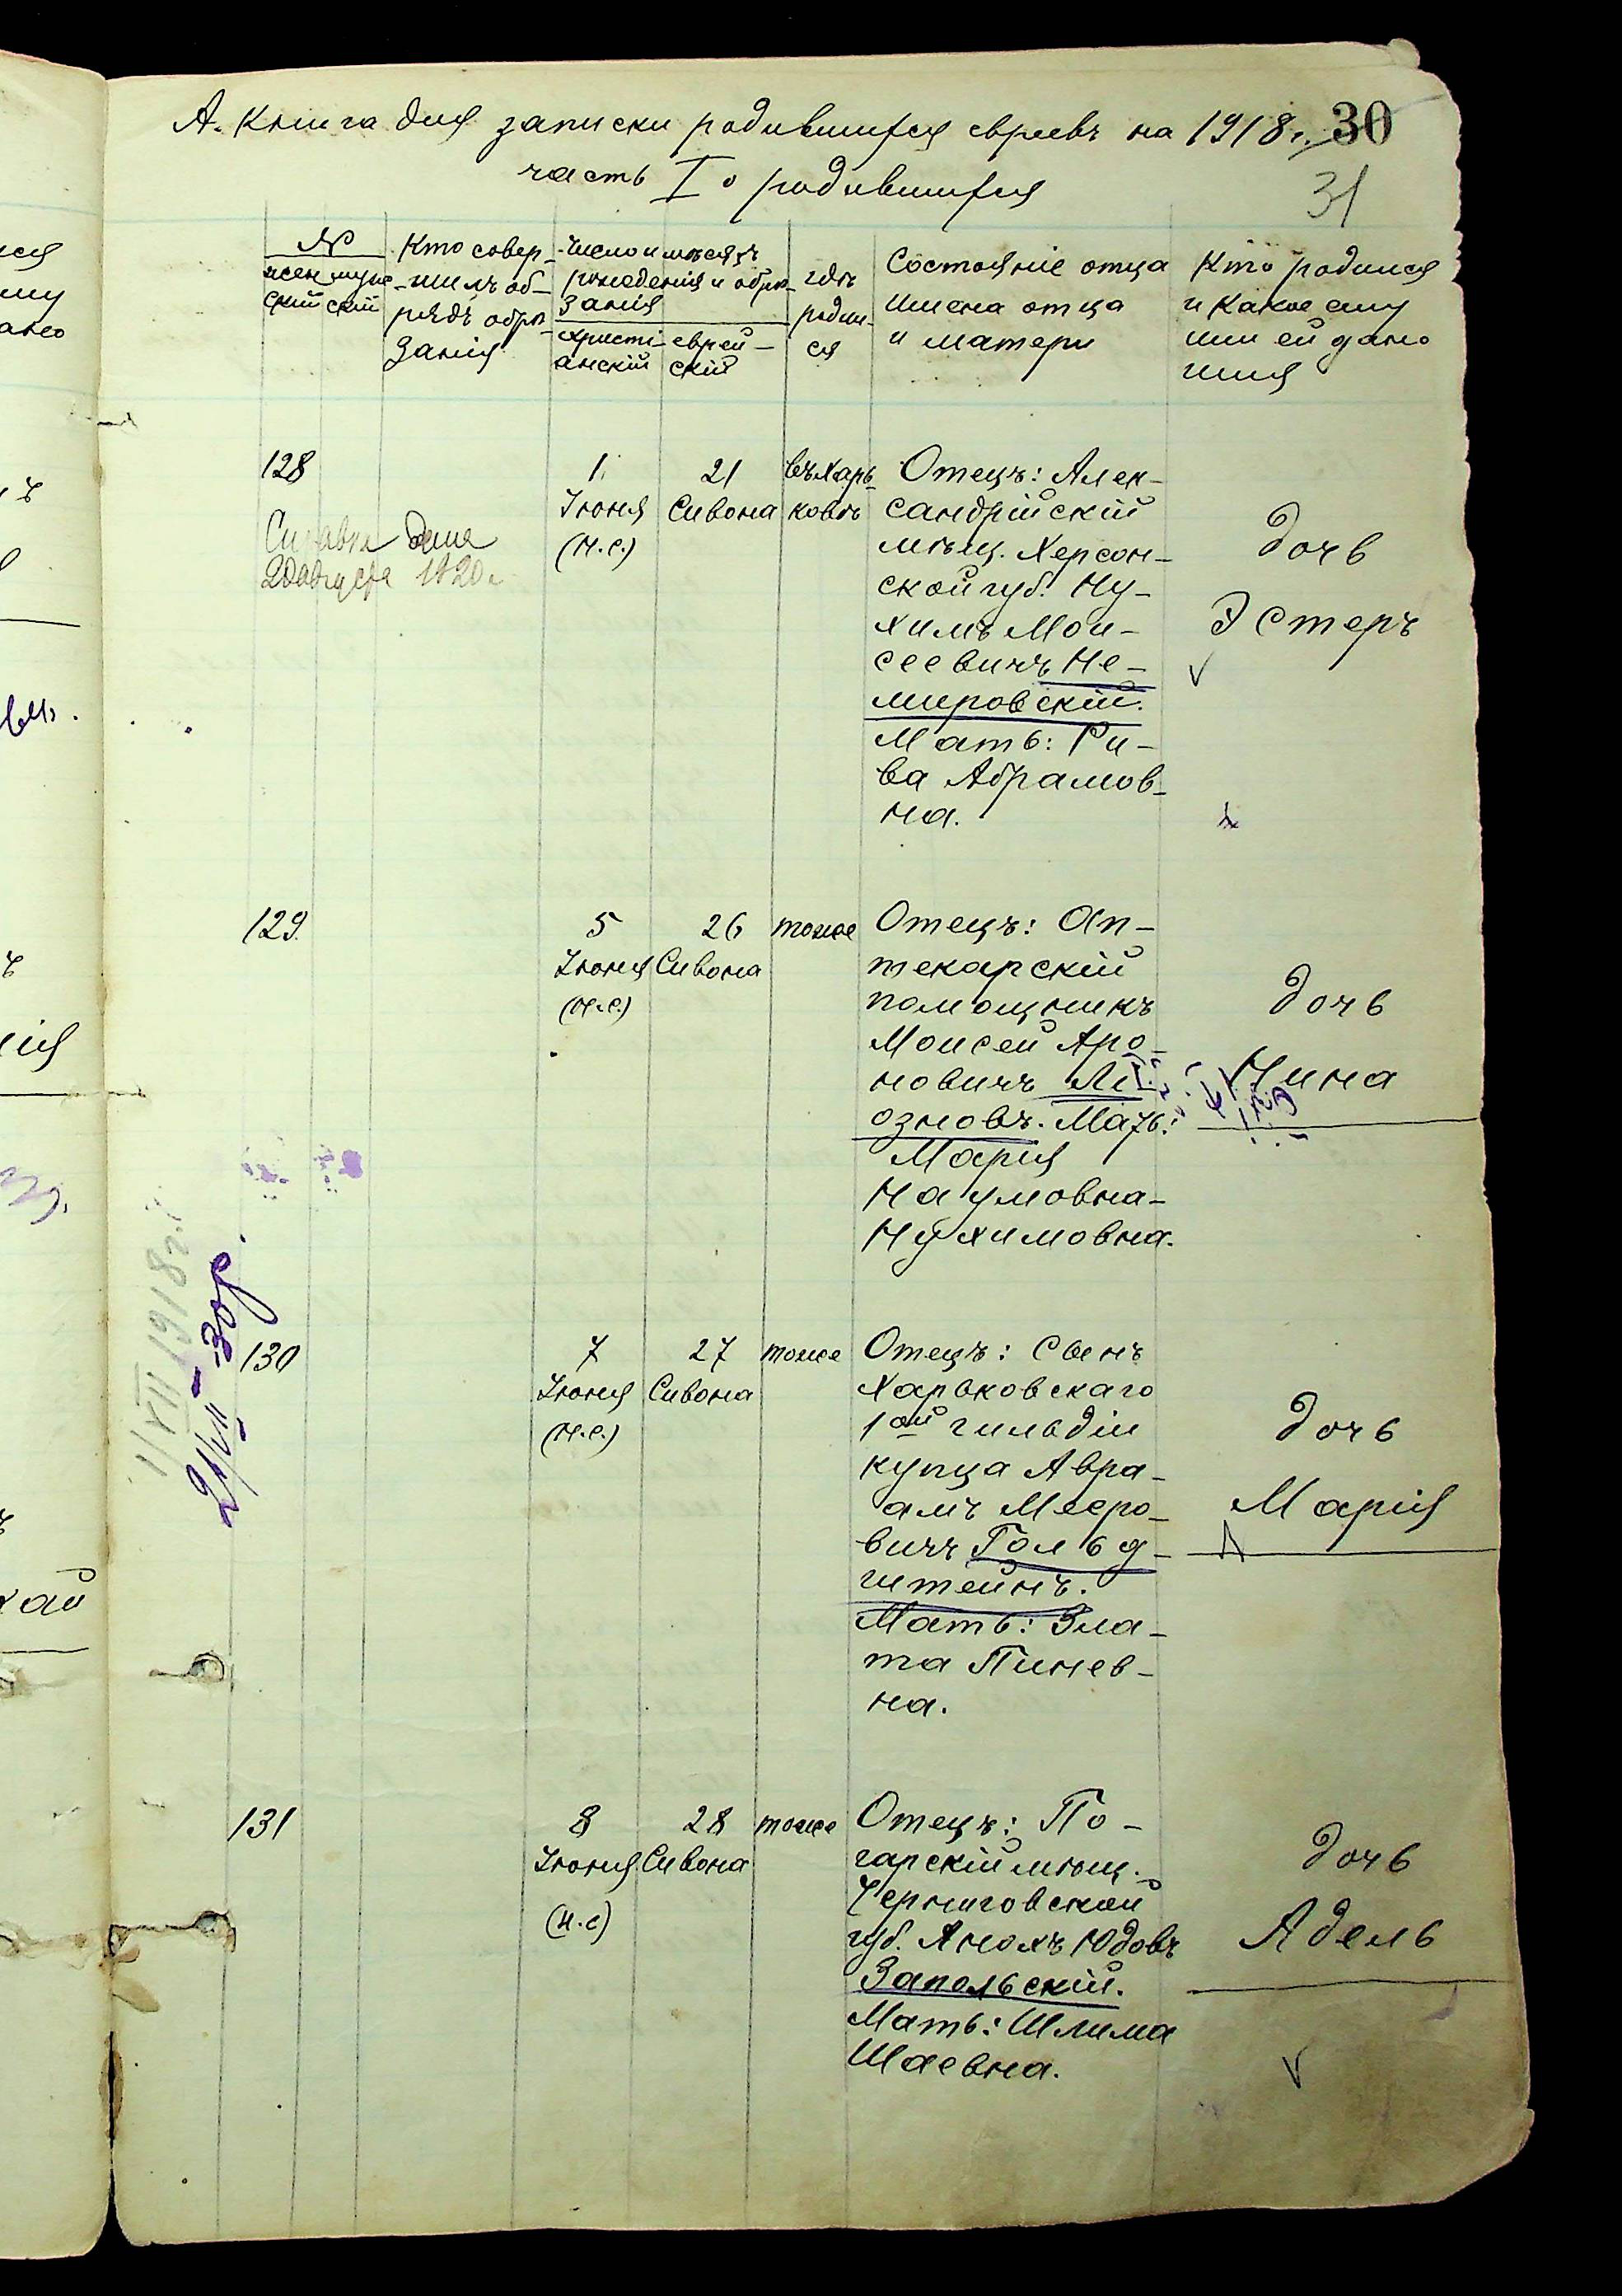 А. Книга для записки родившихся евреевъ на 1918 г. 30
часть I о родившихся
31
№
женскій
мужескій
Кто совер-
шилъ об-
рядъ обрѣ-
занія
Число и мѣсяцъ
рожденія и обрѣ-
занія
христі-
анскій
еврей-
скій
гдѣ
родил-
ся
Состояніе отца
имена отца
и матери
Кто родился
и какое ему
или ей дано
имя
128
Справка дана
20 августа 1920 г.
1
Іюня
(н.с.)
21
Сивона
въ Харь-
ковѣ
Отецъ: Алек-
сандрійскій
мѣщ. Херсон-
ской губ. Ну-
химъ Мои-
сеевичъ Не-
мировскій.
Мать: Ри-
ва Абрамов-
на.
дочь
Эстеръ
129
5
Іюня
(н.с.)
26
Сивона
тоже
Отецъ: Ап-
текарскій
помощникъ
Моисей Аро-
новичъ Лі-
озновъ. Мать:
Марія
Наумовна-
Нухимовна.
дочь
Нина
1/XII 1918 г.
21/VII - 30 г.
130
7
Іюня
(н.с.)
27
Сивона
тоже
Отецъ: Сынъ
Харьковскаго
1ой гильдіи
купца Авра-
амъ Мееро-
вичъ Гольд-
штейнъ.
Мать: Зла-
та Пинев-
на.
дочь
Марія
131
8
Іюня
(н.с)
28
Сивона
тоже
Отецъ: По-
гарскій мѣщ.
Черниговской
губ. Анохъ Юдовъ
Запольскій.
Мать: Шлима
Шаевна.
дочь
Адель